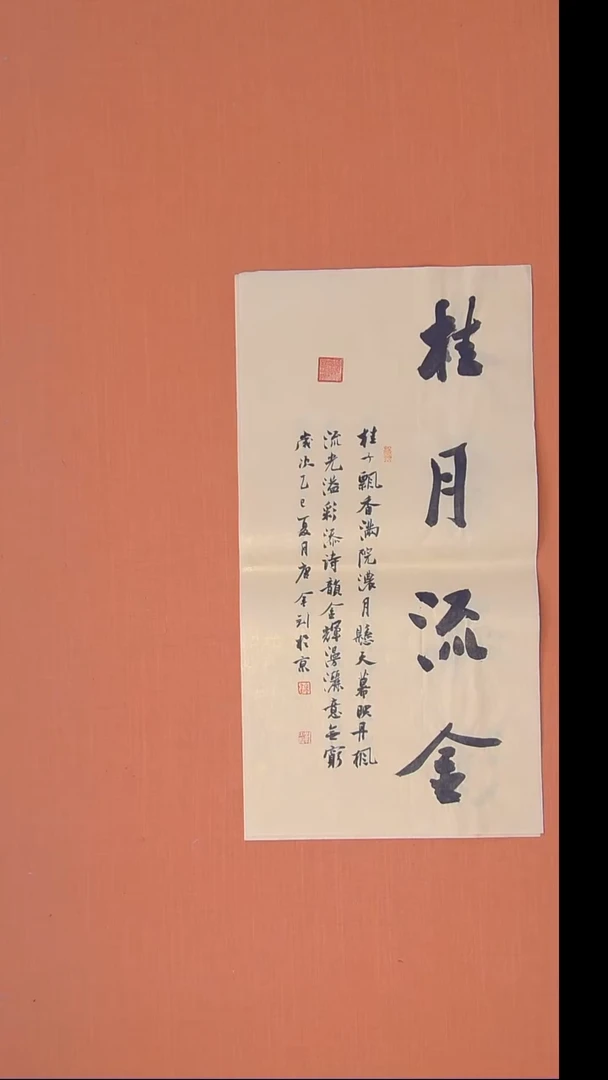 桂月流金
桂子飄香滿院濃月懸天幕映丹楓
流光溢彩添诗韻金輝漫灑意無窮
歲次乙巳夏月唐金钊於京